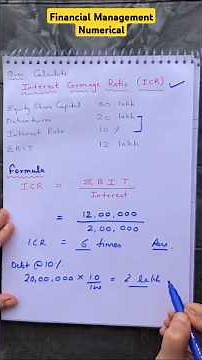 Financial Management
Numerical
Calculate
Interest Coverage Ratio (ICR)
Equity Share Capital 80 lakh
Debentures 20 lakh
Interest Rate 10 %
EBIT 12 lakh
Formula
ICR = EBIT
Interest
= 12,00,000
2,00,000
ICR = 6 times Ans.
Debt @10%
20,00,000 × 10 = 2 lakh
100